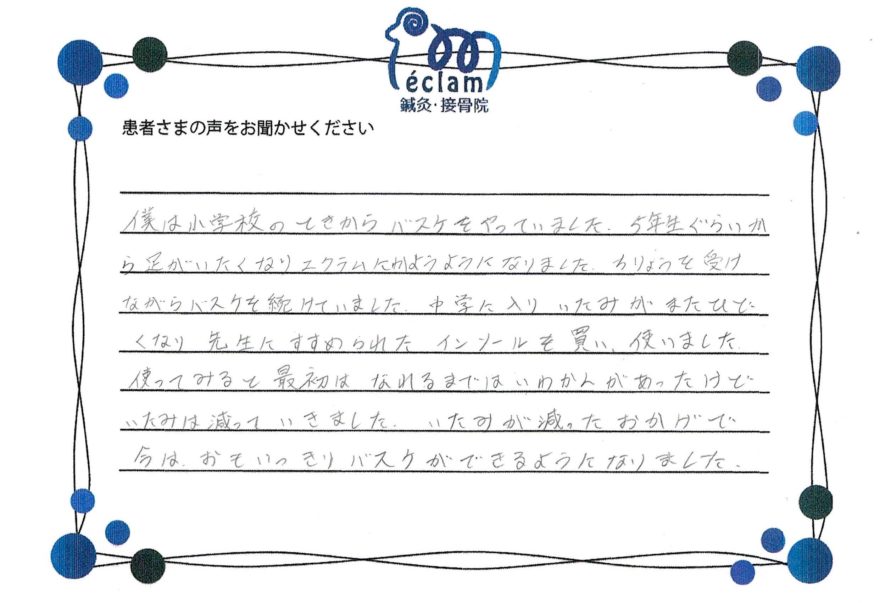 éclam
鍼灸・接骨院
患者さまの声をお聞かせください
僕は小学校のときからバスケをやっていました。5年生ぐらいか
ら足がいたくなりエクラムにかようようになりました。ちりょうを受け
ながらバスケを続けていました。中学に入りいたみがまたひど
くなり先生にすすめられたインソールを買い、使いました。
使ってみると最初はなれるまではいわかんがあったけど
いたみは減っていきました。いたみが減ったおかげで
今は、おもいっきりバスケができるようになりました。